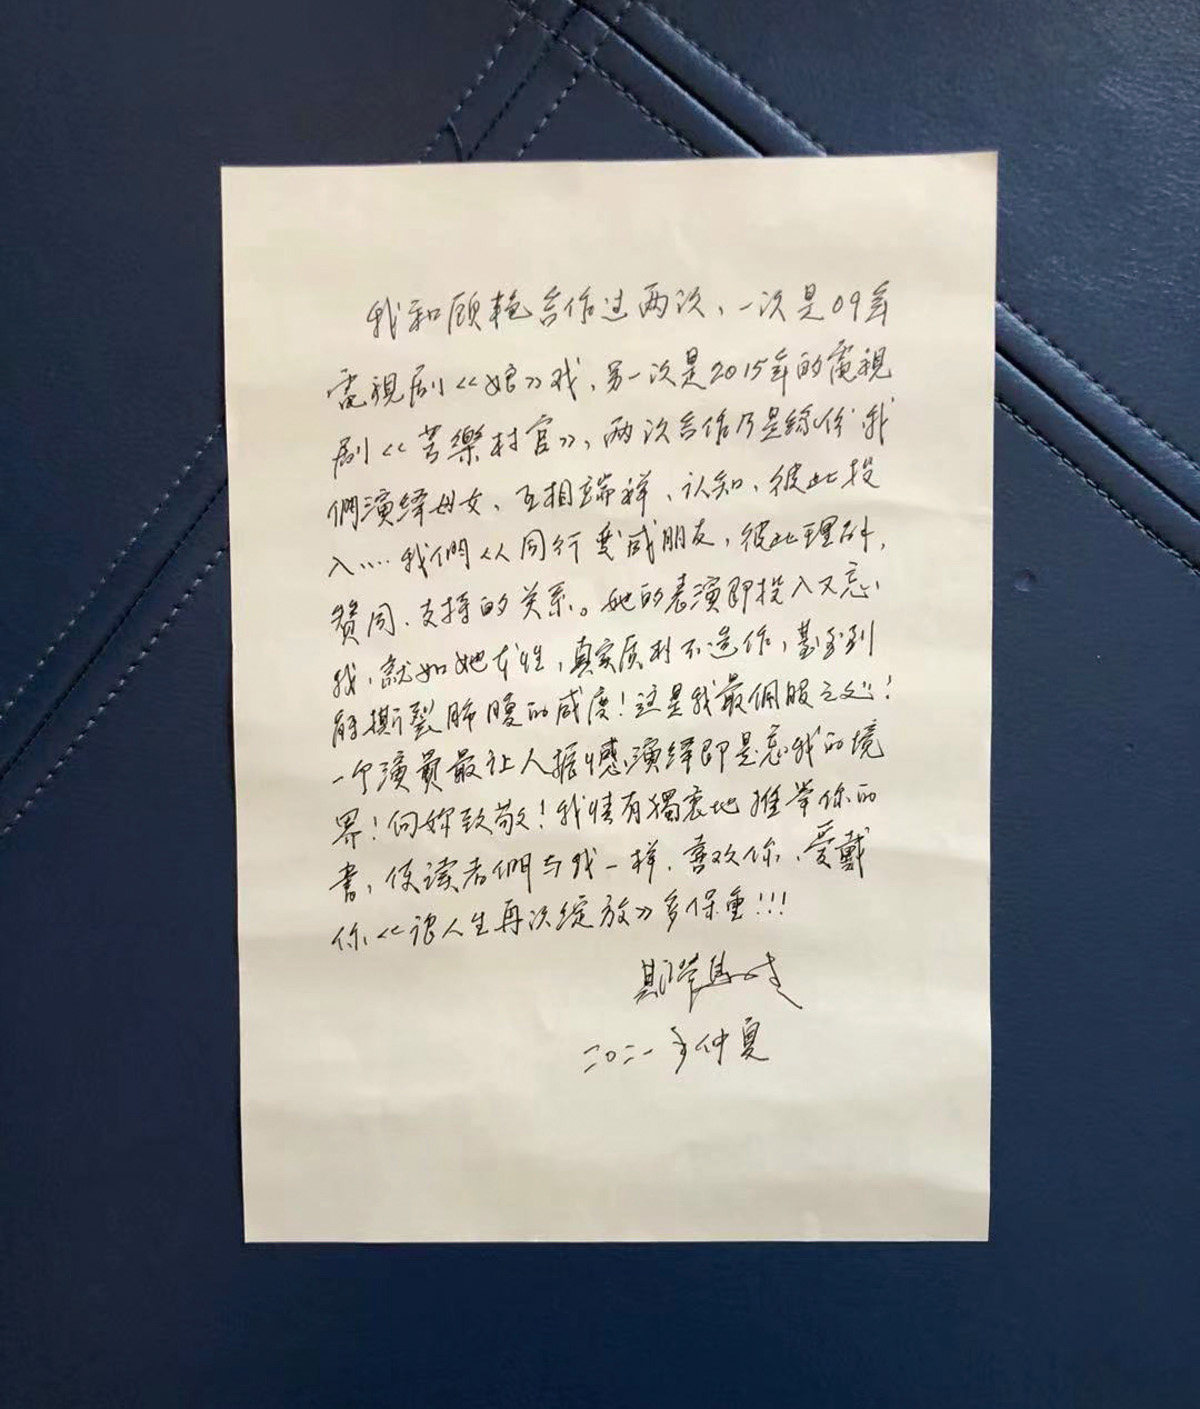 我和顾艳合作过两次、一次是09年
電視剧《娘》戏、另一次是2015年的電視
剧《苦樂村官》、两次合作乃是缘份 我
們演绎母女、互相端祥、认知、彼此投
入.... 我們从同行变成朋友，彼此理解，
赞同、支持的关系。她的表演即投入又忘
我，就如她本性，真实质朴不造作，甚至到
能撕裂肺腹的感度！这是我最佩服之处！
一个演員最让人振憾演绎即是忘我的境
界！向妳致敬！我情有獨衷地推举你的
書，使读者們与我一样、喜欢你、爱戴
你《让人生再次绽放》多保重!!!
斯琴高娃
二〇二一年仲夏